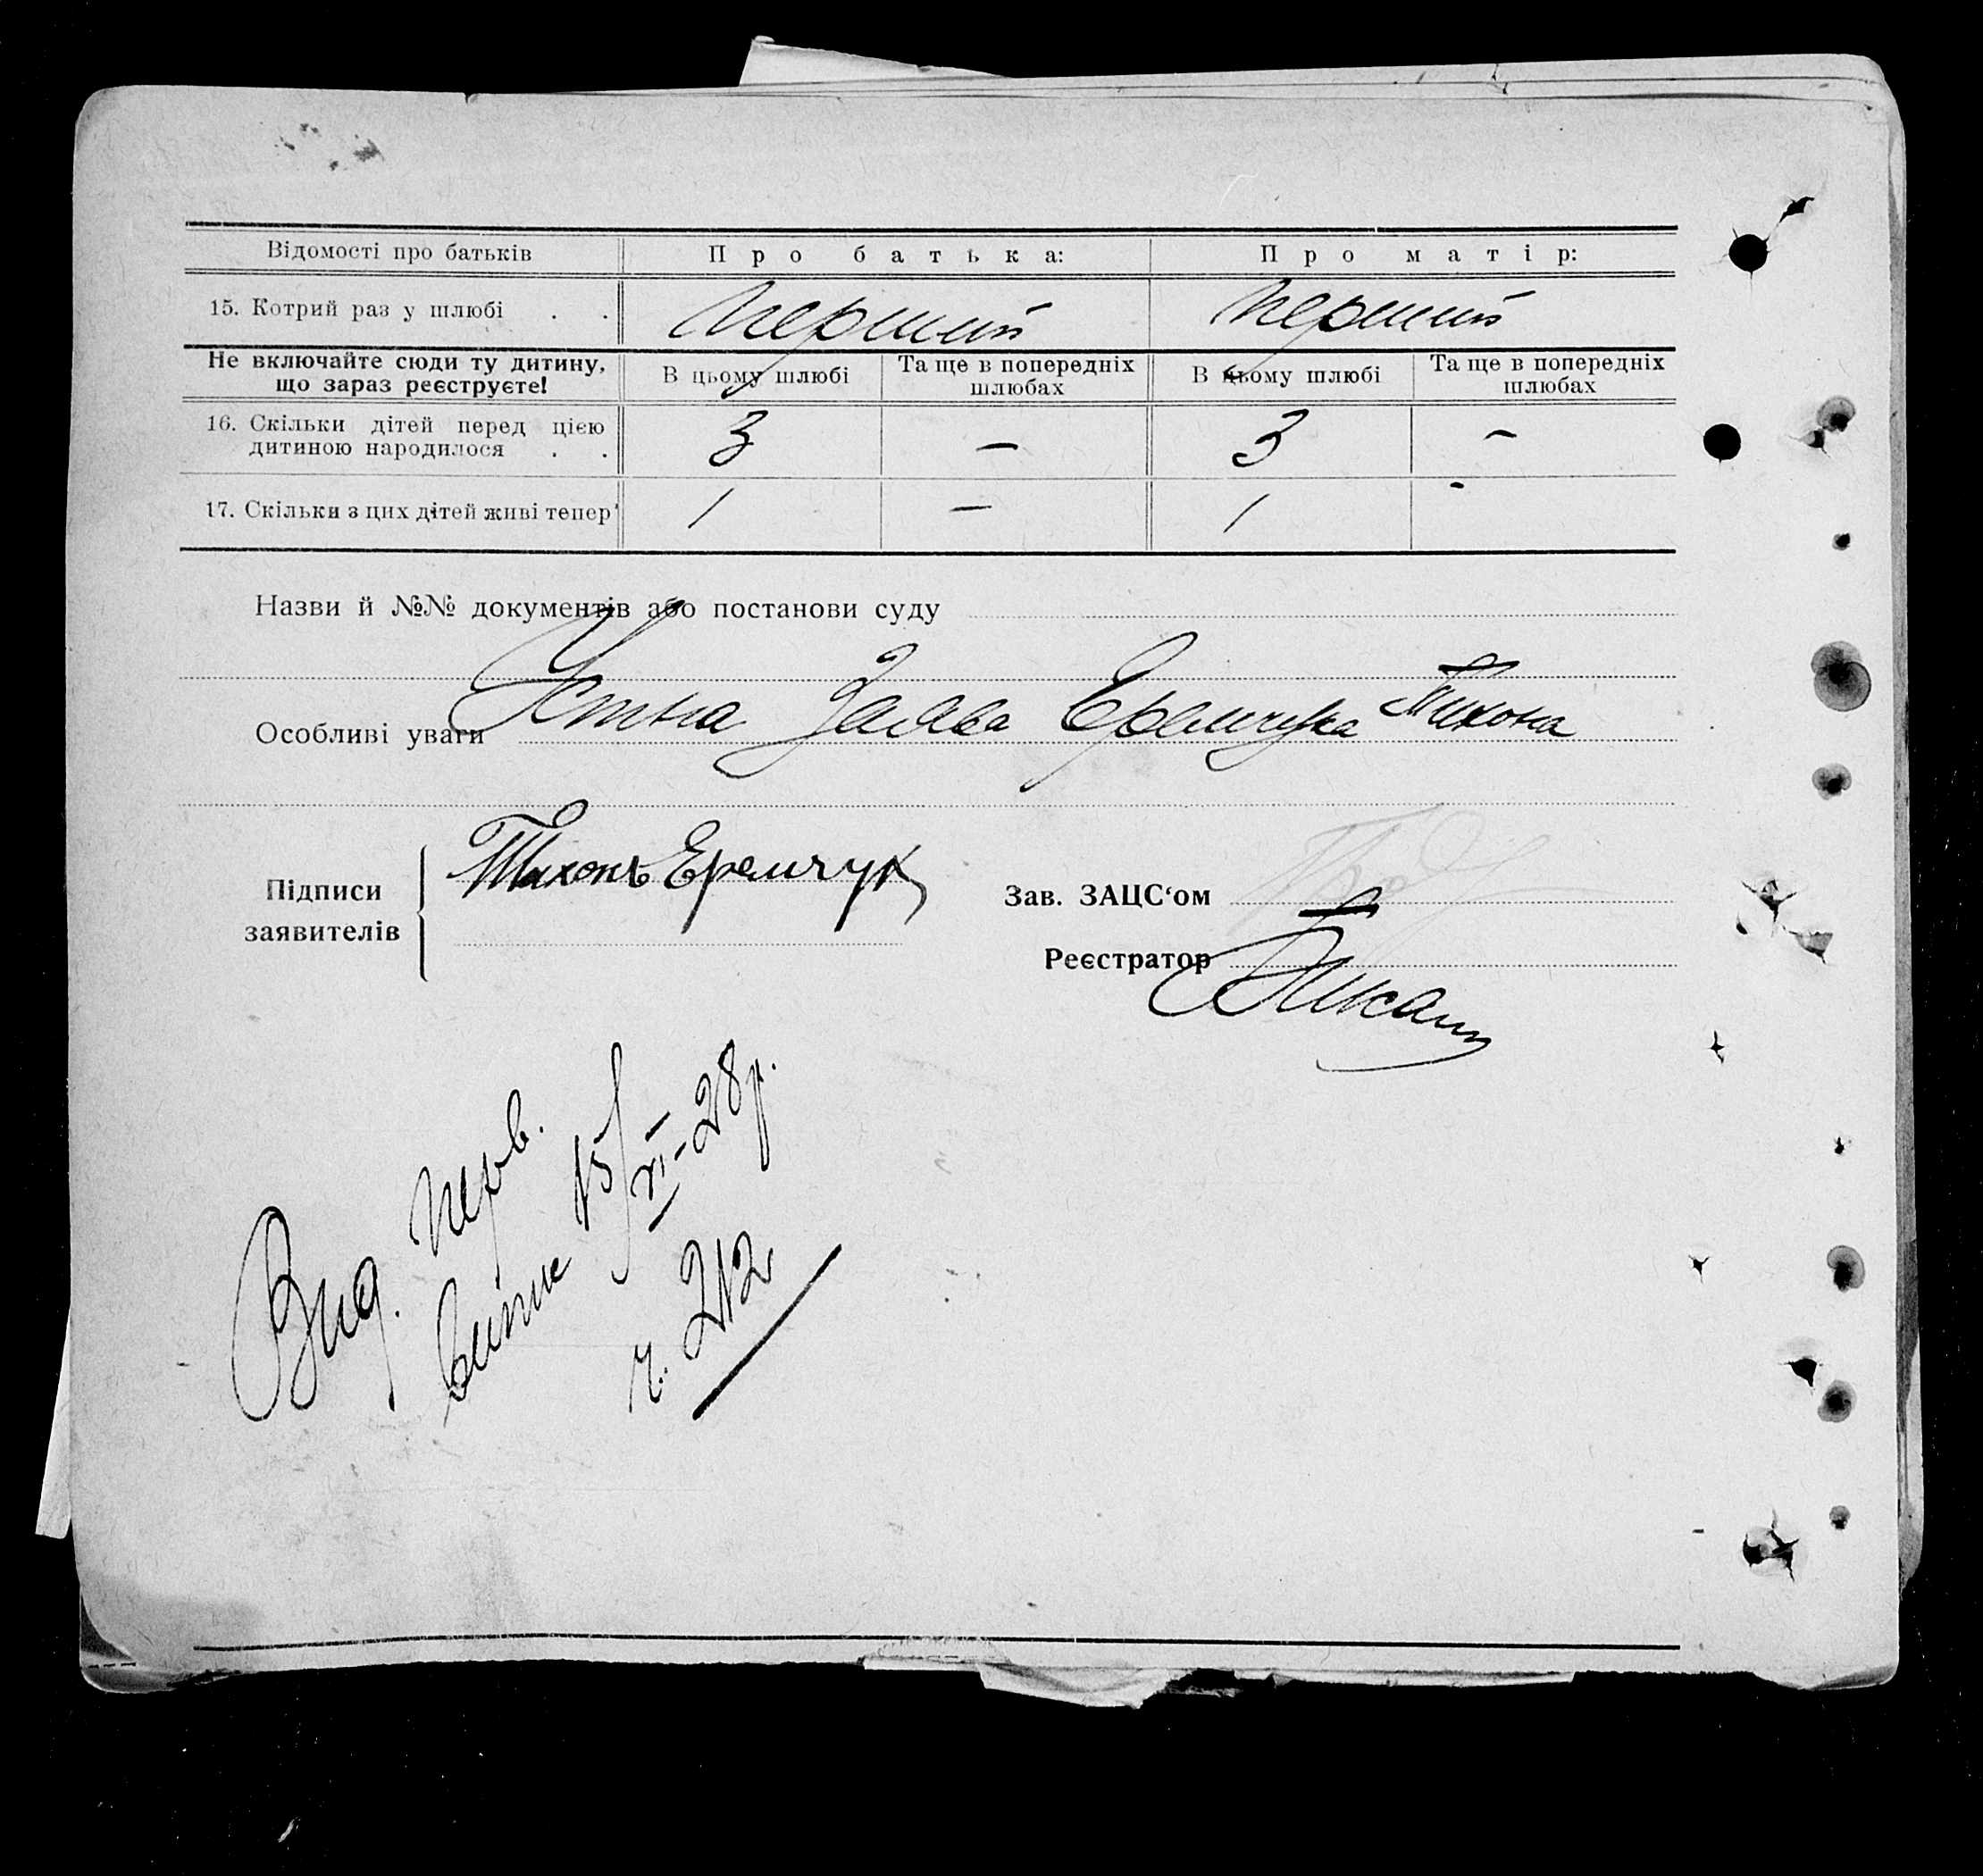 Відомості про батьків Про батька: Про матір:
15. Котрий раз у шлюбі . . перший перший
Не включайте сюди ту дитину, що зараз реєструєте! В цьому шлюбі Та ще в попередніх шлюбах В цьому шлюбі Та ще в попередніх шлюбах
16. Скільки дітей перед цією дитиною народилося . . 3 — 3 —
17. Скільки з цих дітей живі тепер 1 — 1 -
Назви й №№ документів або постанови суду
Устна Заява Еремчука Тихона
Особливі уваги
Підписи заявителів Тихонъ Еремчук
Зав. ЗАЦС‘ом
Реєстратор
Вид. перв.
витяг 15/VI-28р.
ч. 212